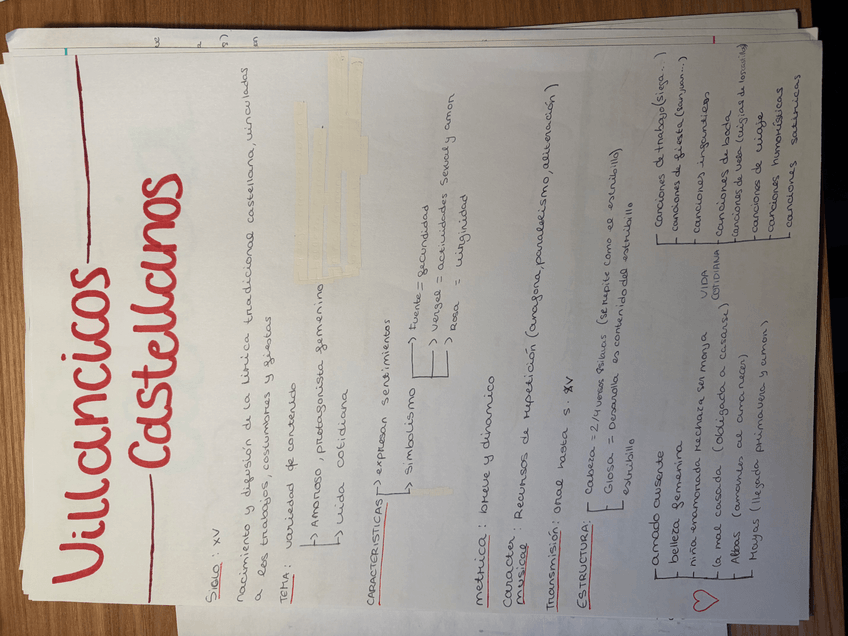 Villancicos
Castellanos
Siglo: XV
nacimiento y difusión de la lírica tradicional castellana, vinculadas
a los trabajos, costumbres y fiestas
TEMA: variedad de contenido
→ Amoroso, protagonista femenino
→ vida cotidiana
CARACTERISTICAS → expresan sentimientos
→ Simbolismo → Fuente = fecundidad
→ Vergel = actividades sexual y amor
→ Rosa = virginidad
metrica: breve y dinámico
Carácter musical: Recursos de repetición (anáfora, paralelismo, aliteración)
Transmisión: oral hasta s: XV
ESTRUCTURA: Cabeza = 2/4 versos (se repite como el estribillo)
Glosa = Desarrolla es contenido del estribillo
amado ausente
belleza femenina
niña enamorada rechaza ser monja
la mal casada (obligada a casarse)
Albas (amantes al amanecer)
Mayas (llegada primavera y amor)
VIDA
COTIDIANA
canciones de trabajo (siega...)
canciones de fiesta (sanjuan...)
canciones infantiles
canciones de boda
canciones de vela
canciones de viaje
canciones humorísticas
canciones satíricas